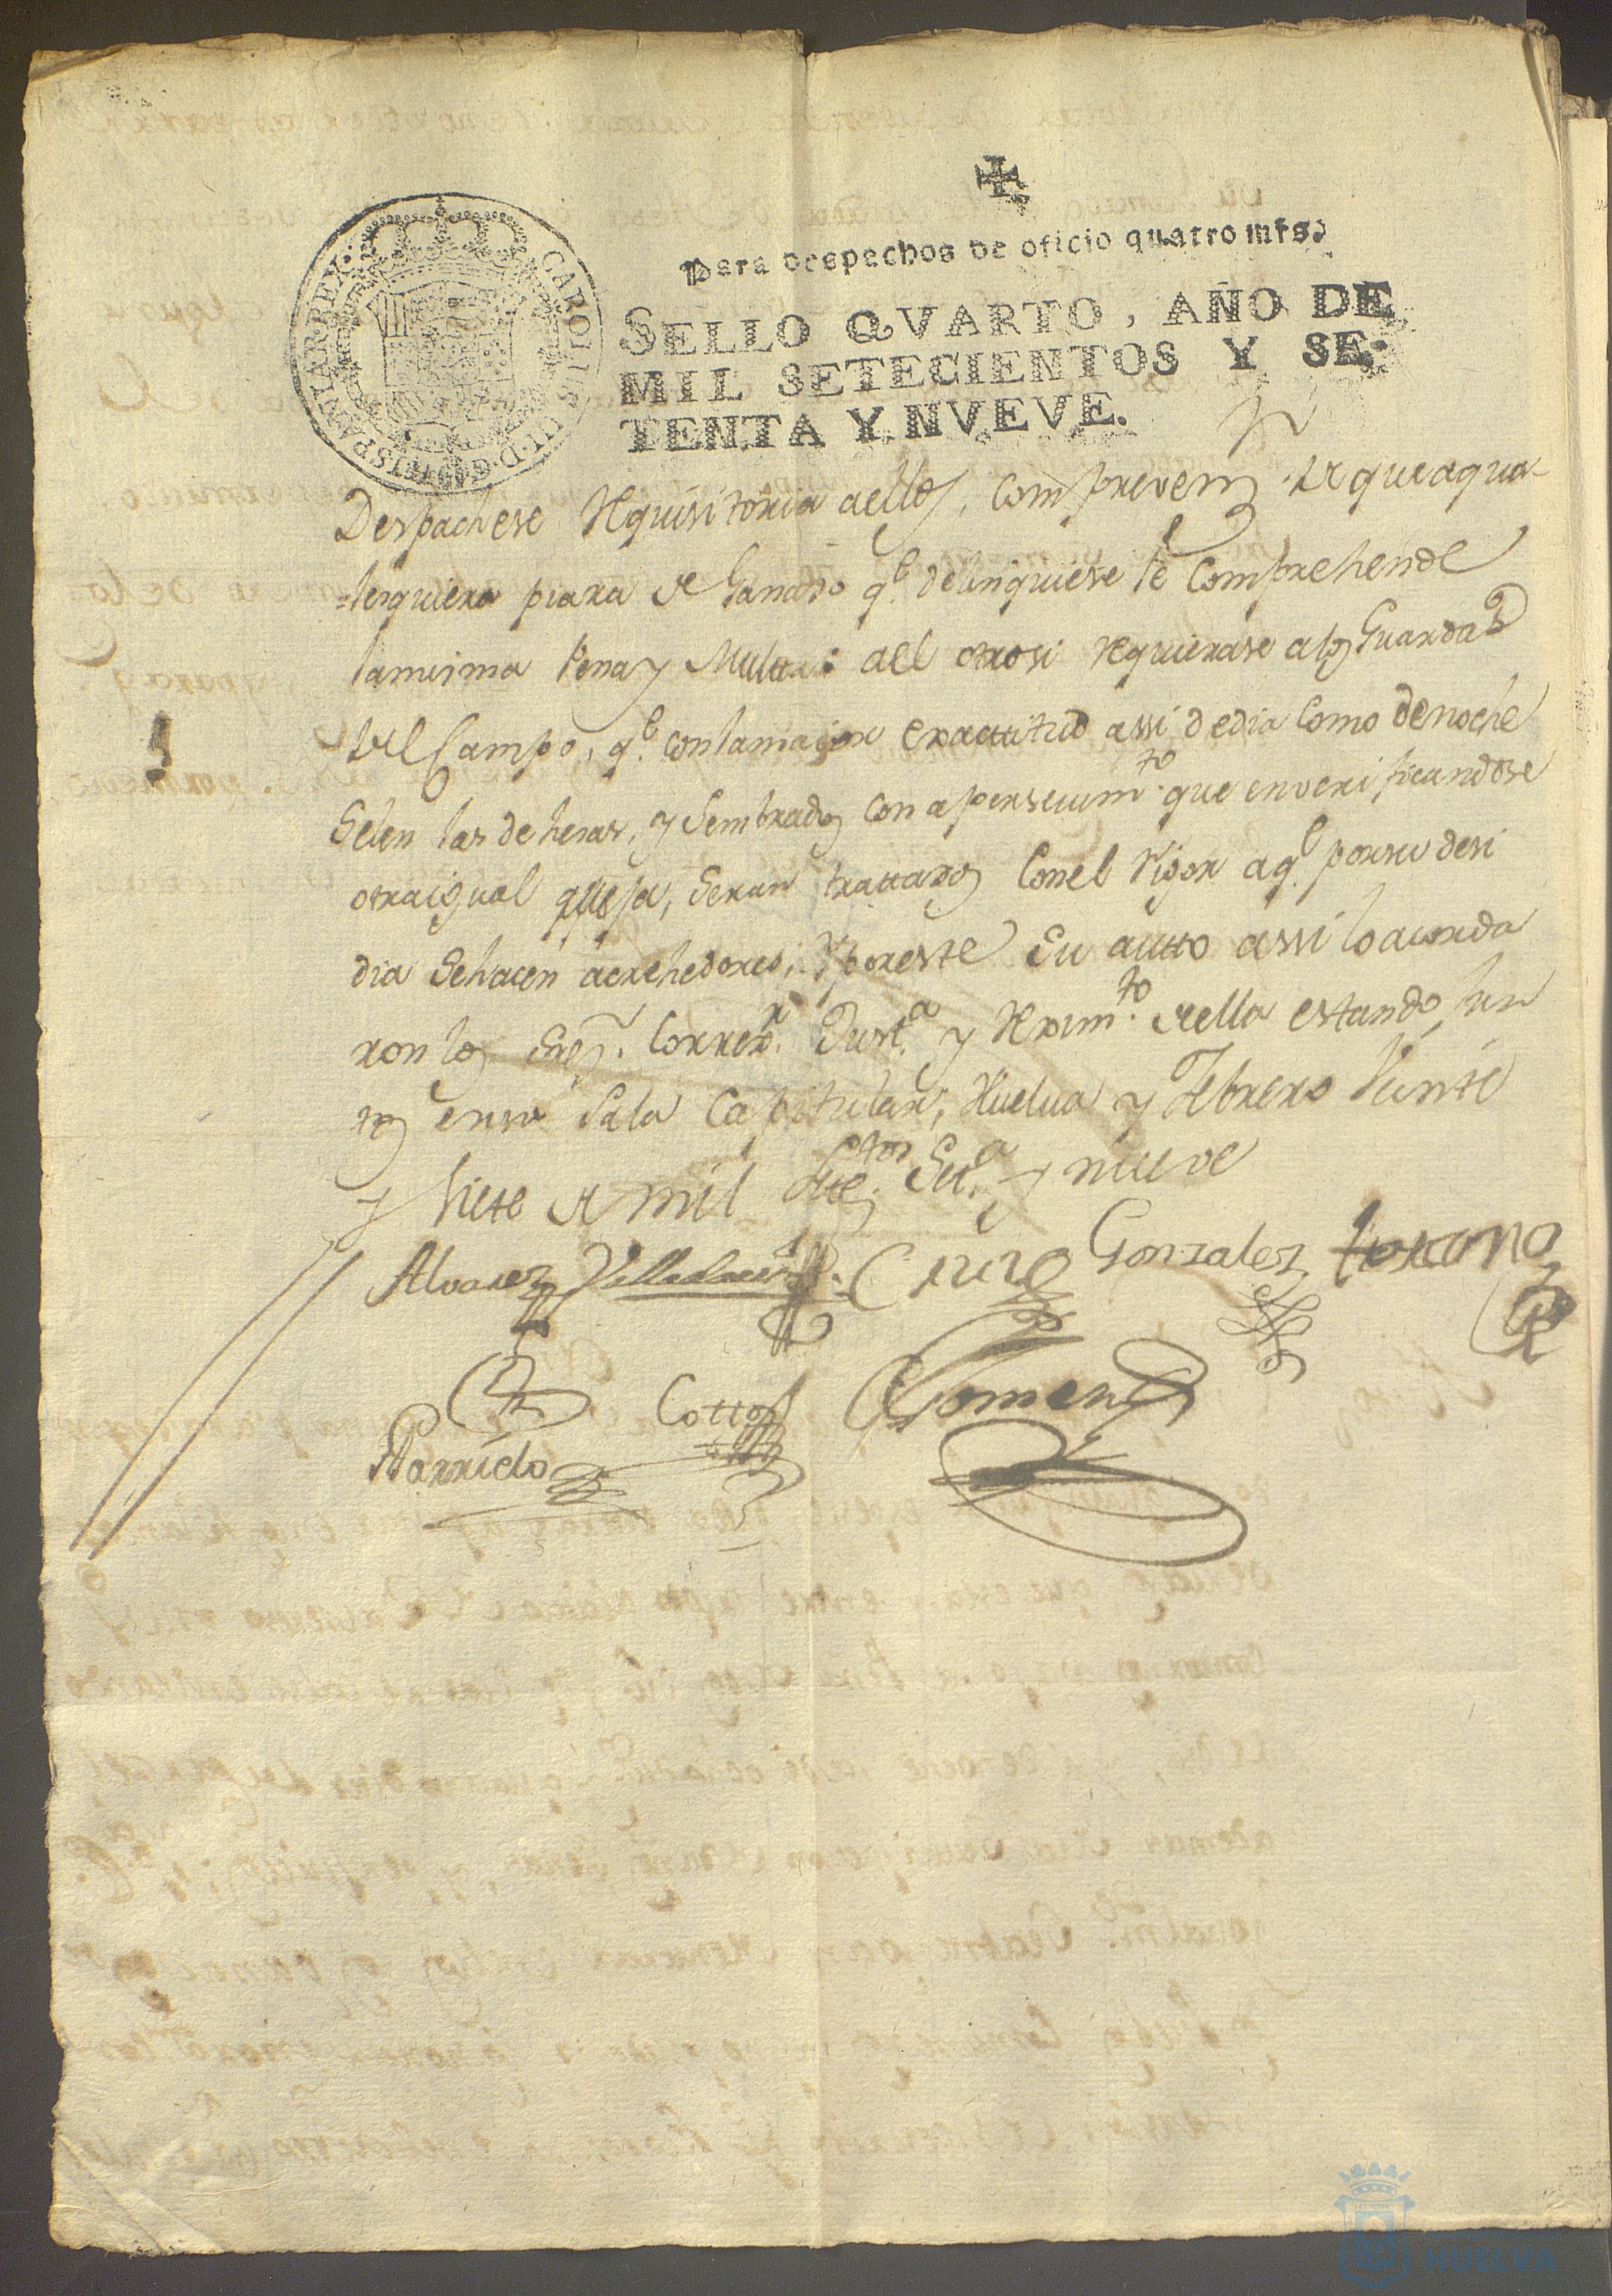 CAROLUS III D. G. HISPANIAR. REX
Para despachos de oficio quatro mrs.
SELLO QVARTO, AÑO DE
MIL SETECIENTOS Y SE-
TENTA Y NVEVE.
Despachese Requisitoria aellos, Comprevenn. de que aqua-
lesquiera piara de Ganado q.e delinquiese le Comprehende
lamisma Pena y Multa: del otrosi requierase alos Guardas
del Campo, q.e conlamaior exactitud assi dedia Como denoche
Zelen las dehesas, y Sembrados con apersevim.to que enverificandose
otraigual quexa, Seran trattados Conel Rigor aq.e porsu desi
dia Sehacen acrehedores; Y poreste Su autto assi loacorda
ron los Sres. Correx.r Just.a y Rexim.to deella estando jun
tos ensu Sala Capitular, Huelva y Febrero Veinte
y Siete de mil Sete.tos Set.a y nueve
Alvarez Villa Cruz Gonzalez
Garrido Cotto Gomez
HUELVA